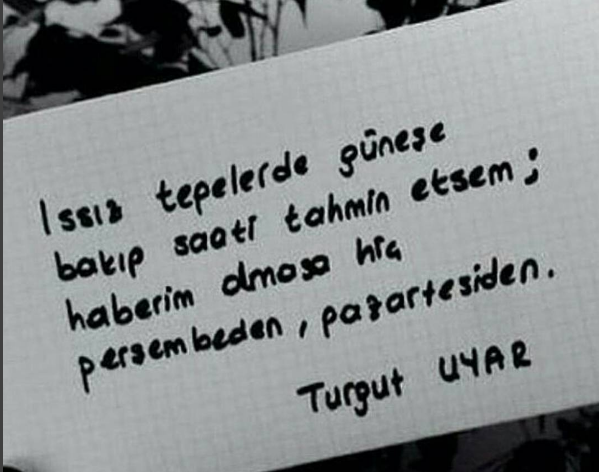 Issız tepelerde güneşe
bakıp saati tahmin etsem;
haberim olmasa hiç
perşembeden, pazartesiden.
Turgut UYAR